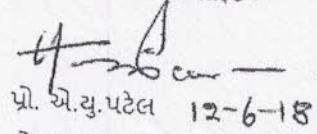 પ્રો. એ.યુ.પટેલ 12-6-18